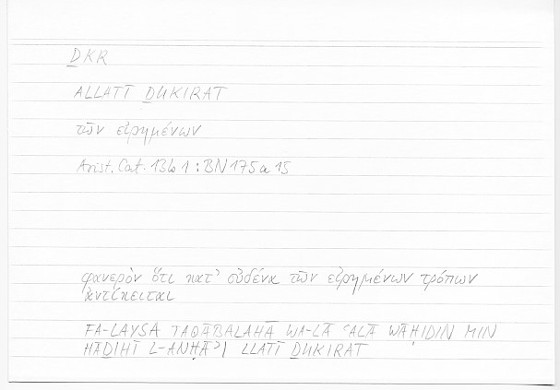 ḎKR
ALLATĪ ḎUKIRAT
τῶν εἰρημένων
Arist. Cat. 13b1 : BN 175a15
φανερὸν ὅτι κατ' οὐδένα τῶν εἰρημένων τρόπων
ἀντίκειται
FA-LAYSA TAQĀBALAHĀ WA-LĀ ʿALĀ WĀḤIDIN MIN
HĀḎIHĪ L-ANḤĀʾI LLATĪ ḎUKIRAT